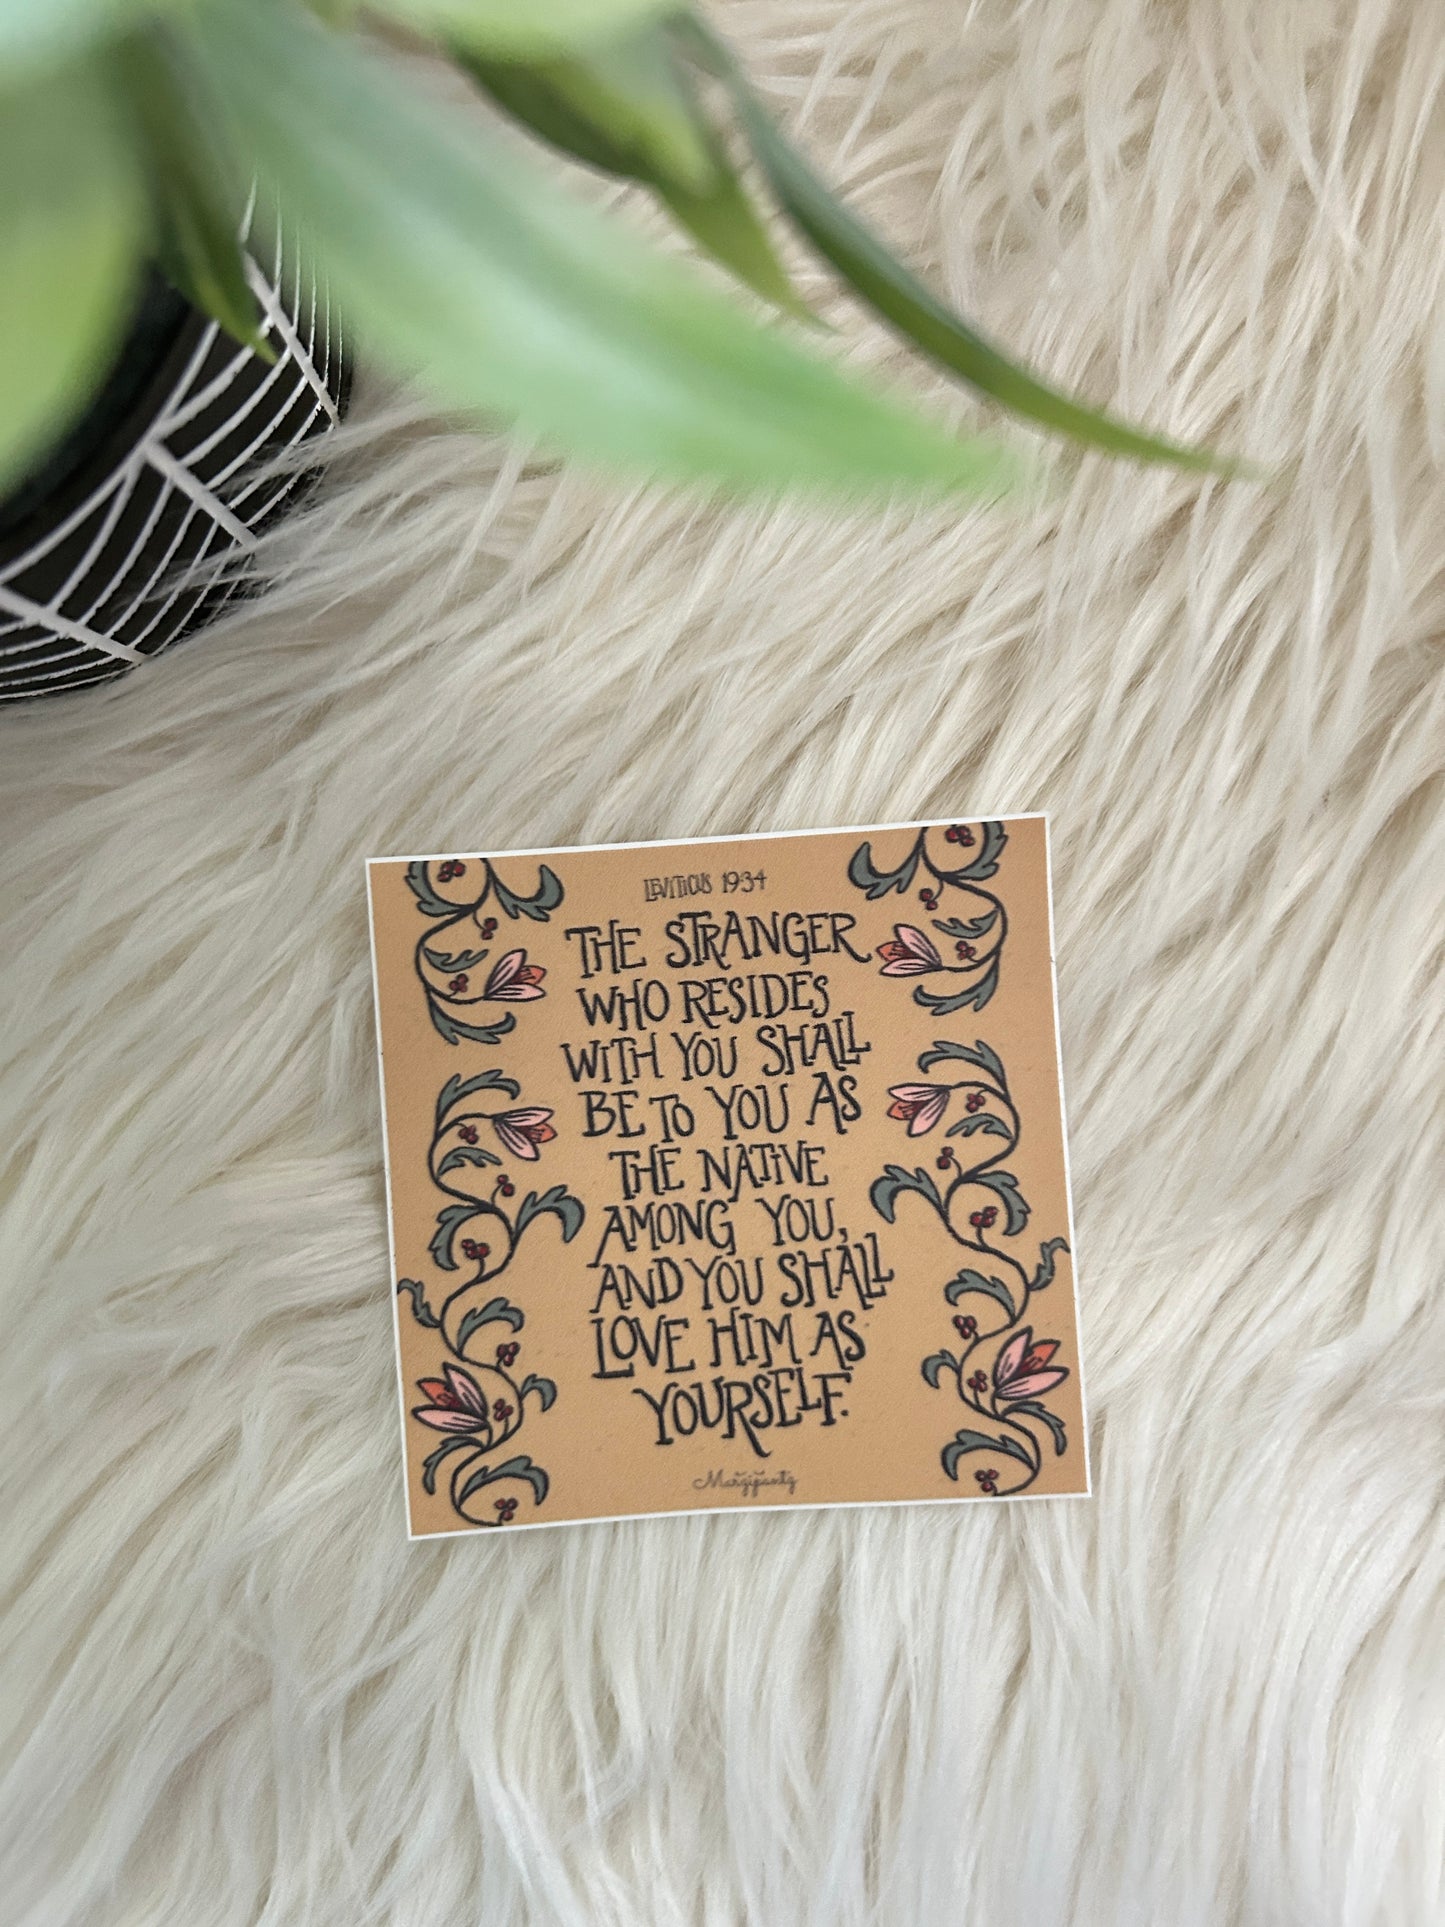 LEVITICUS 19:34
THE STRANGER
WHO RESIDES
WITH YOU SHALL
BE TO YOU AS
THE NATIVE
AMONG YOU,
AND YOU SHALL
LOVE HIM AS
YOURSELF.